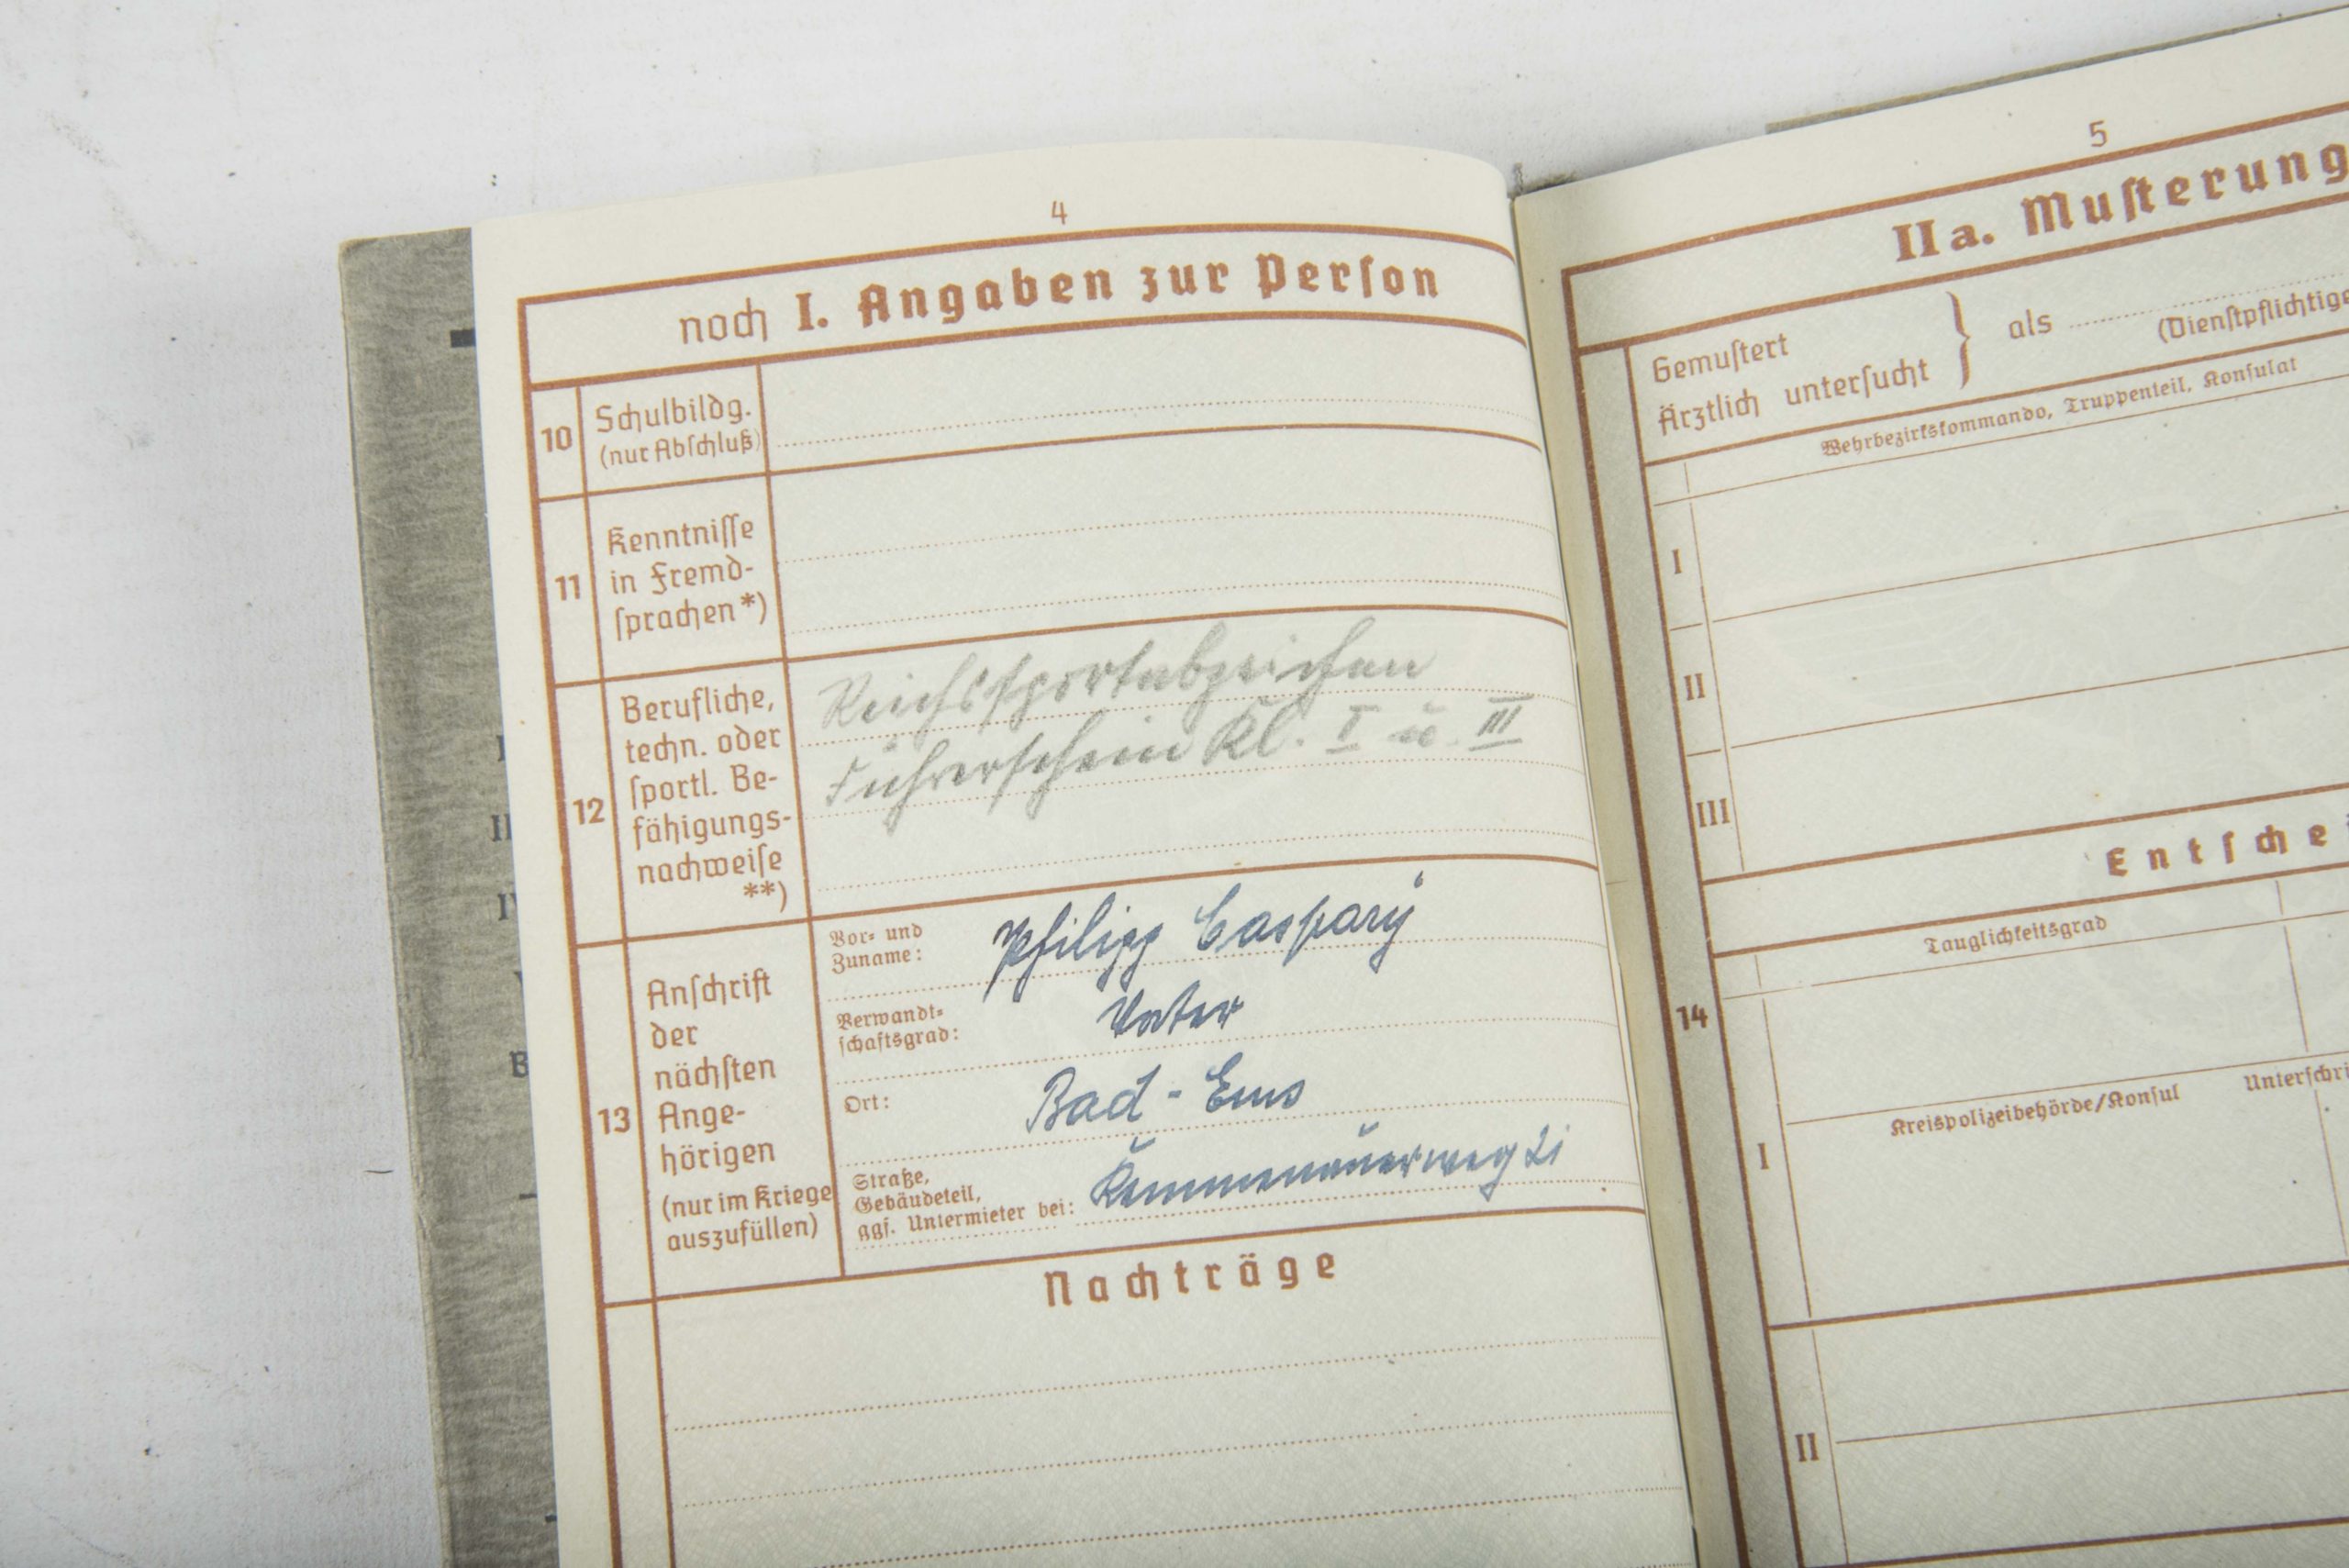 4
noch I. Angaben zur Person
10
Schulbildg.
(nur Abschluß)
11
Kenntnisse
in Fremd-
sprachen *)
12
Berufliche,
techn. oder
sportl. Be-
fähigungs-
nachweise
**)
Reichssportabzeichen
Führerschein Kl. I u. III
13
Anschrift
der
nächsten
Ange-
hörigen
(nur im Kriege
auszufüllen)
Vor- und
Zuname:
Philipp Caspary
Verwandt-
schaftsgrad:
Vater
Ort:
Bad-Ems
Straße,
Gebäudeteil,
ggf. Untermieter bei:
Kemmenauerweg 21
Nachträge
5
IIa. Musterung
Gemustert
Ärztlich untersucht
} als
(Dienstpflichtige
Wehrbezirkskommando, Truppenteil, Konsulat
I
II
III
Entsche
14
Tauglichkeitsgrad
I
Kreispolizeibehörde/Konsul
Unterschri
II